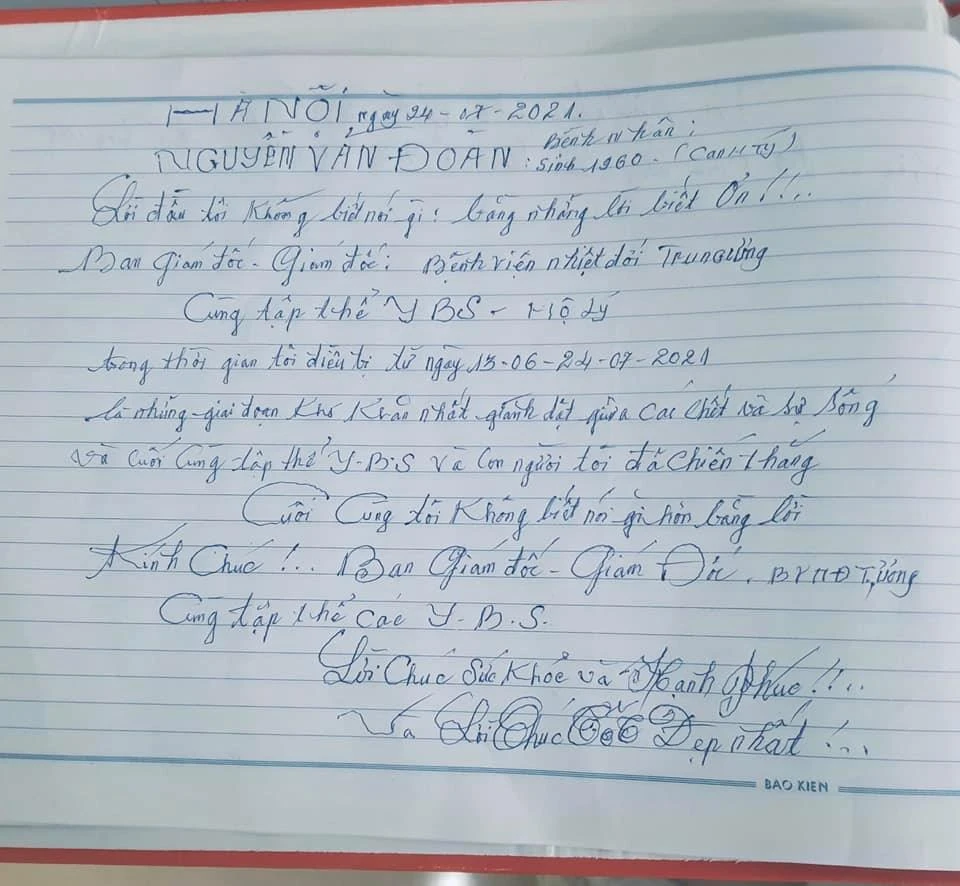 HÀ NỖI ngày 24-07-2021.
Bệnh nhân:
NGUYỄN VĂN ĐOÀN : Sinh 1960 - (CANH TÝ)
Lời đầu tôi không biết nói gì: bằng những lời biết Ơn!!!...
Ban Giám đốc - Giám đốc: Bệnh viện nhiệt đới Trung ương
Cùng tập thể Y BS - Hộ Lý
trong thời gian tôi điều trị từ ngày 13-06-24-07-2021
là những giai đoạn khó khăn nhất giành dật giữa các chết và sự sống
và cuối cùng tập thể Y-B.S và con người tôi đã chiến thắng
Cuối Cùng tôi không biết nói gì hơn bằng lời
Kính Chúc!... Ban Giám đốc - Giám Đốc. BVNĐ T,ương
Cùng tập thể các Y-B.S.
Lời Chúc Sức khỏe và Hạnh phúc!!...
Và Lời Chúc Tốt Đẹp nhất!...
BAO KIEN